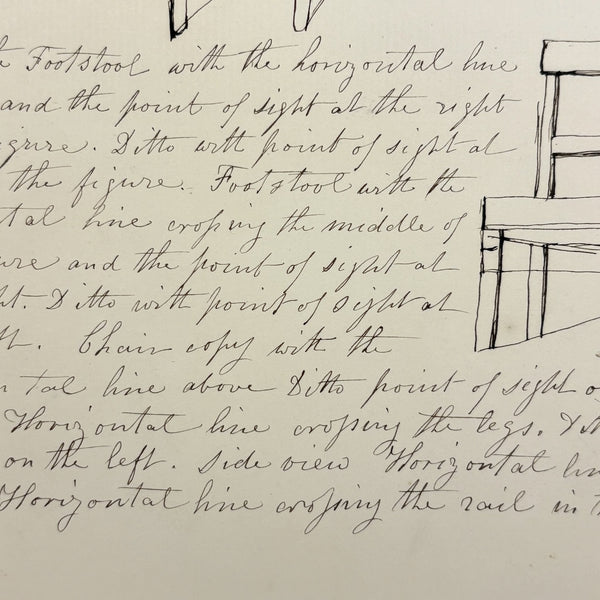 Footstool with the horizontal line
and the point of sight at the right
figure. Ditto with point of sight at
the figure. Footstool with the
tal line croſsing the middle of
ure and the point of sight at
ht. Ditto with point of sight at
ft. Chair copy with the
n tal line above Ditto point of sight o
Horizontal line croſsing the legs. Dit
on the left. Side view Horizontal lin
Horizontal line croſsing the rail in t